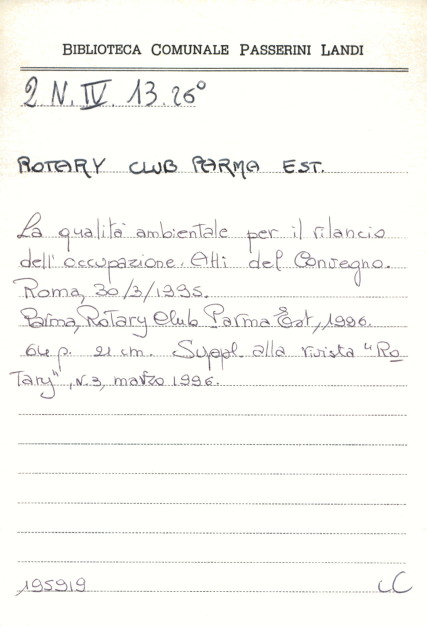 BIBLIOTECA COMUNALE PASSERINI LANDI
2. N. IV. 13. 26°
ROTARY CLUB PARMA EST.
La qualità ambientale per il rilancio
dell'occupazione. Atti del Convegno.
Roma, 30/3/1995.
Parma, Rotary Club Parma Est, 1996.
64 p. 21 cm. Suppl. alla rivista "Ro
tary", N.3, marzo 1996.
195919 iC